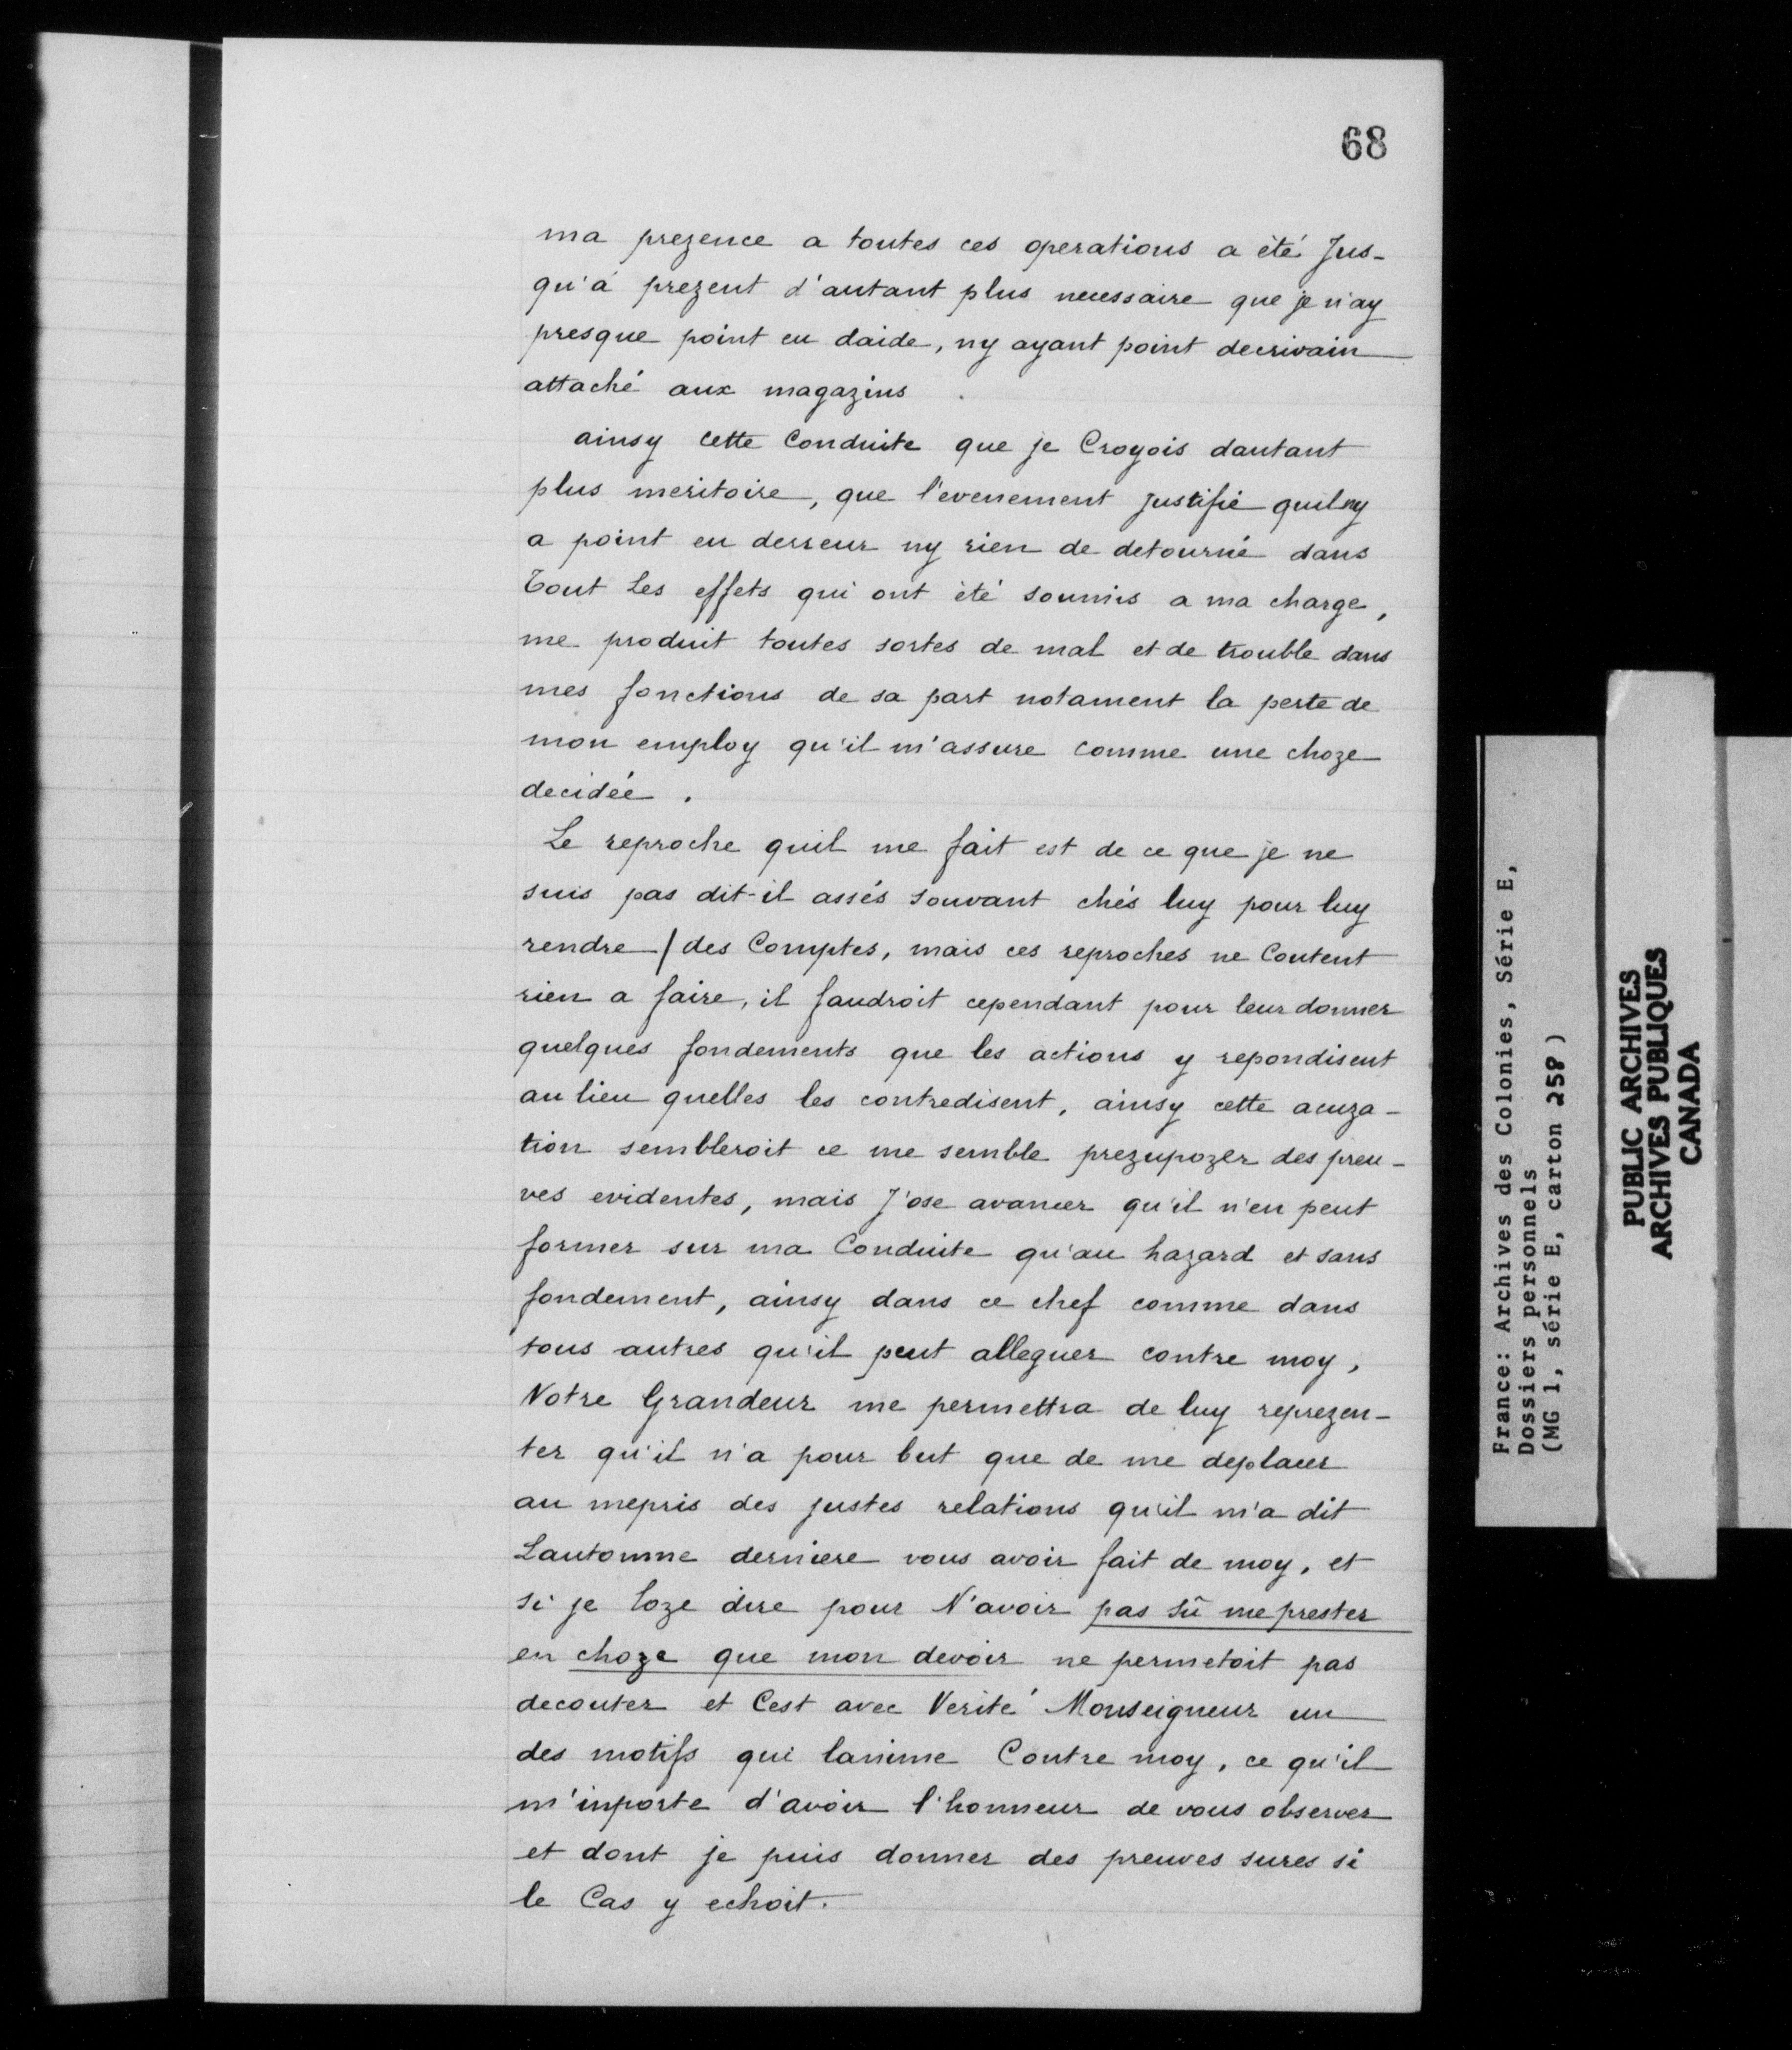 68
ma prezence a toutes ces operations a été Jus-
qu'à prezent d'autant plus necessaire que je n'ay
presque point eu daide, ny ayant point decrivain
attaché aux magazins .
ainsy cette Conduite que je Croyois dautant
plus meritoire, que l'evenement justifie quil ny
a point eu derreur ny rien de detourné dans
Tout Les effets qui ont été soumis a ma charge,
me produit toutes sortes de mal et de trouble dans
mes fonctions de sa part notament la perte de
mon employ qu'il m'assure comme une choze
decidée .
Le reproche quil me fait est de ce que je ne
suis pas dit-il assés souvant chés luy pour luy
rendre / des Comptes, mais ces reproches ne Coutent
rien a faire, il faudroit cependant pour leur donner
quelques fondements que les actions y repondisent
au lieu quelles les contredisent, ainsy cette acuza-
tion sembleroit ce me semble prezupozer des preu-
ves evidentes, mais J'ose avancer qu'il n'en peut
former sur ma Conduite qu'au hazard et sans
fondement, ainsy dans ce chef comme dans
tous autres qu'il peut alleguer contre moy,
Votre Grandeur me permettra de luy reprezen-
ter qu'il n'a pour but que de me deplacer
au mepris des justes relations qu'il m'a dit
Lautomne derniere vous avoir fait de moy, et
si je loze dire pour N'avoir pas sû me prester
en choze que mon devoir ne permetoit pas
decouter et Cest avec Verité Monseigneur un
des motifs qui lanime Contre moy, ce qu'il
m'inporte d'avoir l'honneur de vous observer
et dont je puis donner des preuves sures si
le Cas y echoit.
France: Archives des Colonies, Série E,
Dossiers personnels
(MG 1, série E, carton 258 )
PUBLIC ARCHIVES
ARCHIVES PUBLIQUES
CANADA